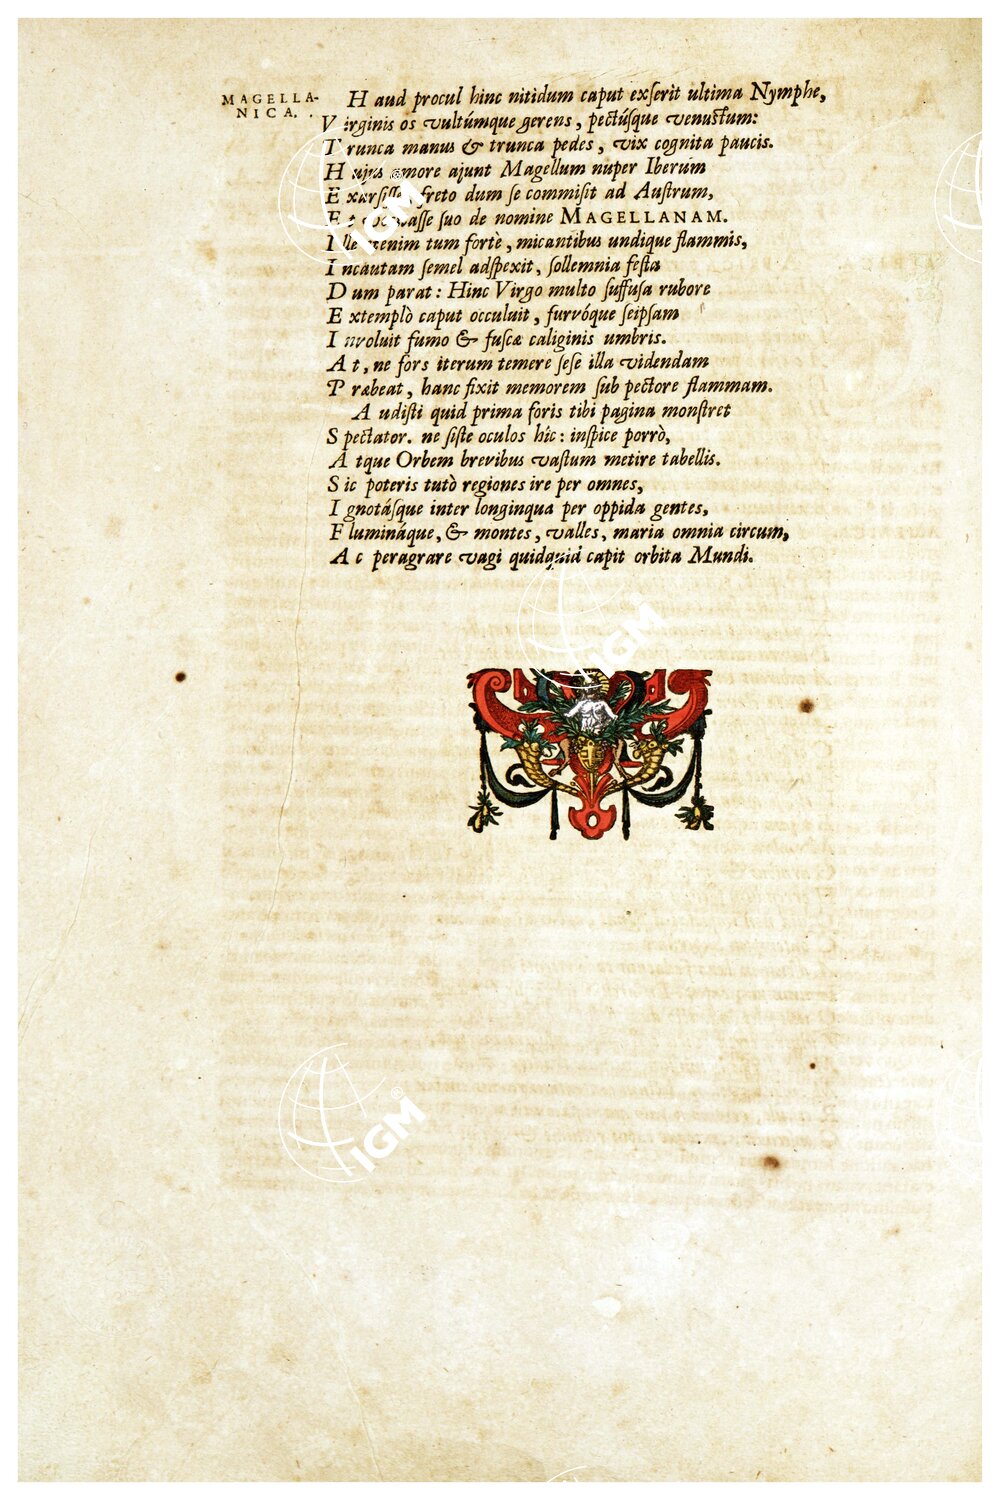 MAGELLA-
NICA.
Haud procul hinc nitidum caput exſerit ultima Nymphe,
Virginis os vultúmque gerens, pectúſque venuſtum:
Trunca manus & trunca pedes, vix cognita paucis.
Hujus amore ajunt Magellum nuper Iberûm
Exarſiſſe, freto dum ſe commiſit ad Auſtrum,
Et vocaſſe ſuo de nomine MAGELLANAM.
Ille etenim tum fortè, micantibus undique flammis,
Incautam ſemel adſpexit, ſollemnia feſta
Dum parat: Hinc Virgo multo ſuffuſa rubore
Extemplò caput occuluit, furvóque ſeipſam
Involuit fumo & fuſcæ caliginis umbris.
At, ne fors iterum temere ſeſe illa videndam
Præbeat, hanc fixit memorem ſub pectore flammam.
Audiſti quid prima foris tibi pagina monſtret
Spectator. ne ſiſte oculos hîc: inſpice porrò,
Atque Orbem brevibus vaſtum metire tabellis.
Sic poteris tutò regiones ire per omnes,
Ignotáſque inter longinqua per oppida gentes,
Fluminàque, & montes, valles, maria omnia circum,
Ac peragrare vagi quidquid capit orbita Mundi.
IGM
IGM
IGM